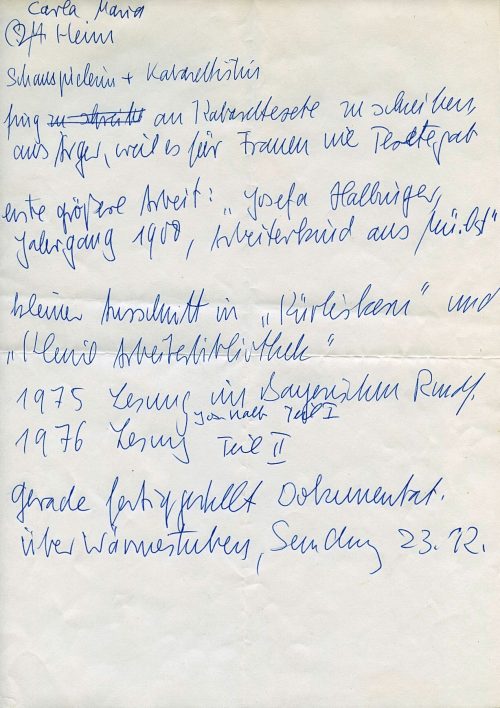 Carla Maria
Heim
Schauspielerin + Kabarettistin
fing zu schreiben an Kabarettexte zu schreiben,
aus Ärger, weil es für Frauen nie Texte gab
erste größere Arbeit: „Josefa Halbinger,
Jahrgang 1900, Arbeiterkind aus Mü.Ost"
kleiner Ausschnitt in „Kürbiskern" und
„Kleine Arbeiterbibliothek"
1975 Lesung im Bayerischen Rundf.
Teil I
1976 Lesung Teil II
gerade fertiggestellt Dokumentat.
über Wärmestuben, Sendung 23.12.